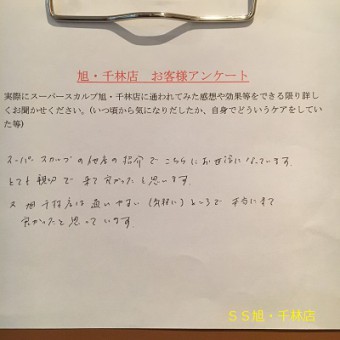 旭・千林店 お客様アンケート
実際にスーパースカルプ旭・千林店に通われてみた感想や効果等をできる限り詳し
くお聞かせください。(いつ頃から気になりだしたか、自身でどういうケアをしてい
た等)
スーパースカルプの他店の紹介でこちらにお世話になっています。
とても親切で来て良かったと思います。
又 旭千林店は通いやすい(気軽に)ところで 本当に来て
良かったと思っています。
ＳＳ旭・千林店